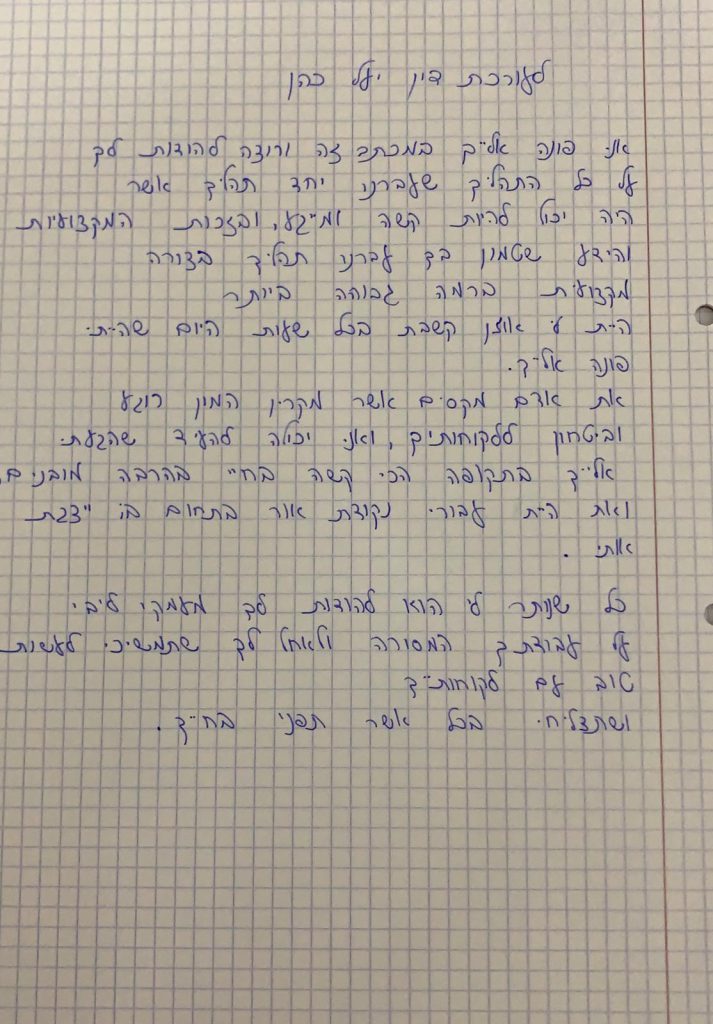 לעורכת דין יעל כהן
אני פונה אלייך במכתב זה ורוצה להודות לך
על כל התהליך שעברנו יחד תהליך אשר
היה יכול להיות קשה ומייגע, ובזכות המקצועיות
והידע שטמון בך עברנו תהליך בצורה
מקצועית ברמה גבוהה ביותר
היית לי אוזן קשבת בכל שעות היום שהייתי
פונה אלייך.
את אדם מקסים אשר מקרין המון רוגע
וביטחון ללקוחותיך, ואני יכולה להעיד שהגעתי
אלייך בתקופה הכי קשה בחיי בהרבה מובנים
ואת היית עבורי נקודת אור בתחום בו ייצגת
אותי.
כל שנותר לי הוא להודות לך מעמקי ליבי
על עבודתך המסורה ולאחל לך שתמשיכי לעשות
טוב עם לקוחותייך
ושתצליחי בכל אשר תפני בחייך.